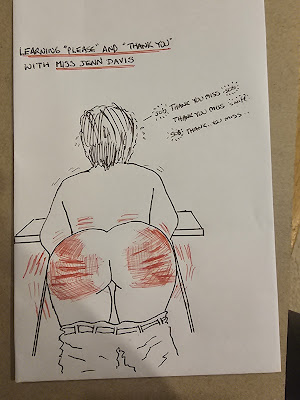 LEARNING "PLEASE" AND "THANK YOU"
WITH MISS JENN DAVIS
SOB THANK YOU MISS SOB
THANK YOU MISS SNIFF
SOB THANK.. YOU MISS...